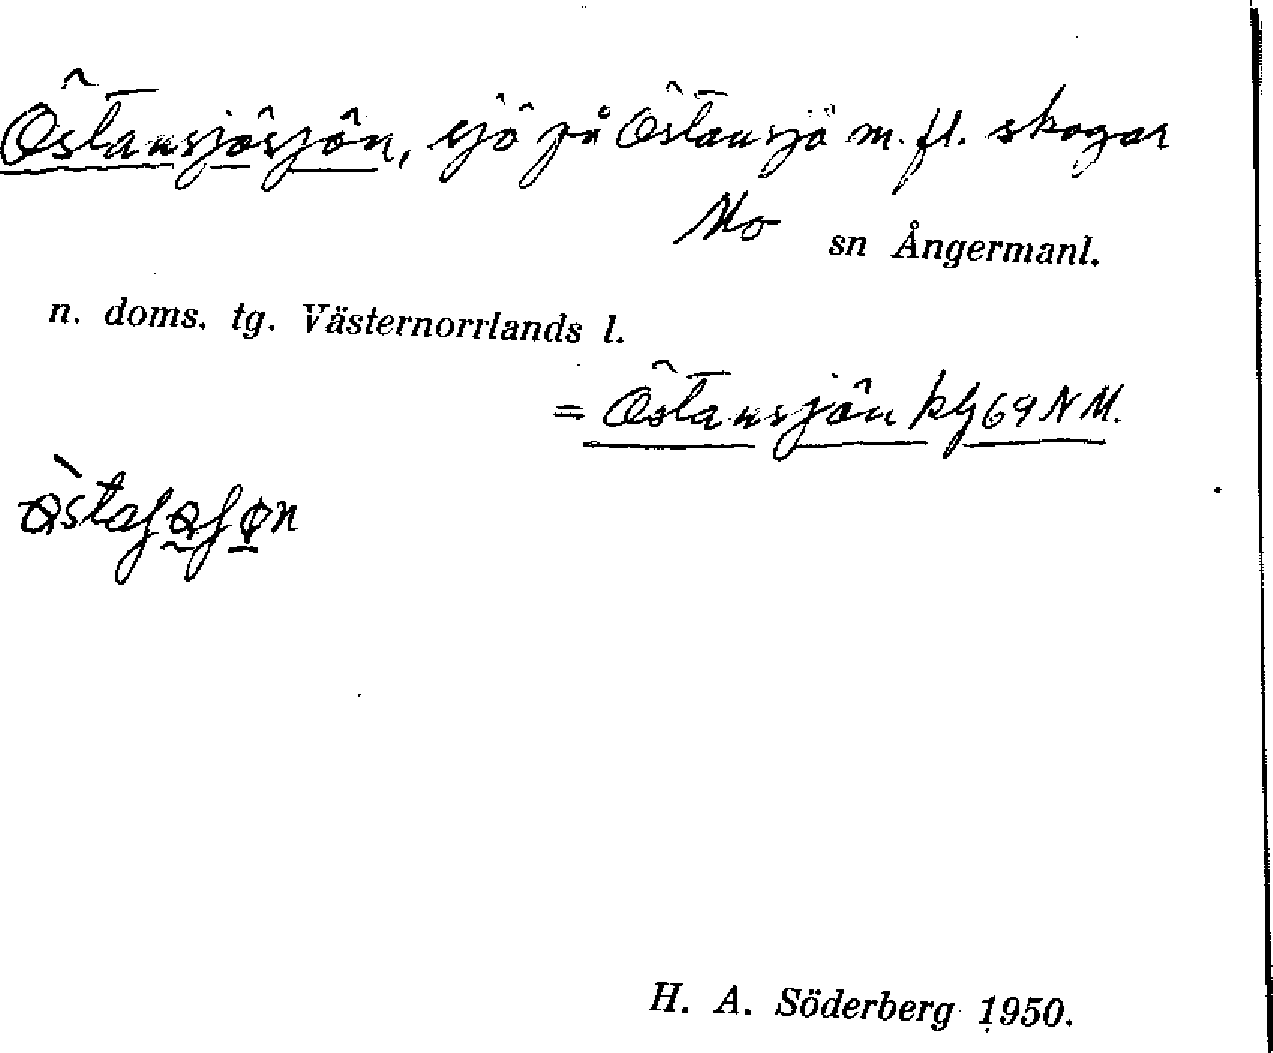 Östansjösjön, sjö på Östansjö m. fl. skogar
Mo sn Ångermanl.
n. doms. tg. Västernorrlands l.
= Östansjön kbl 69 N M.
H. A. Söderberg 1950.